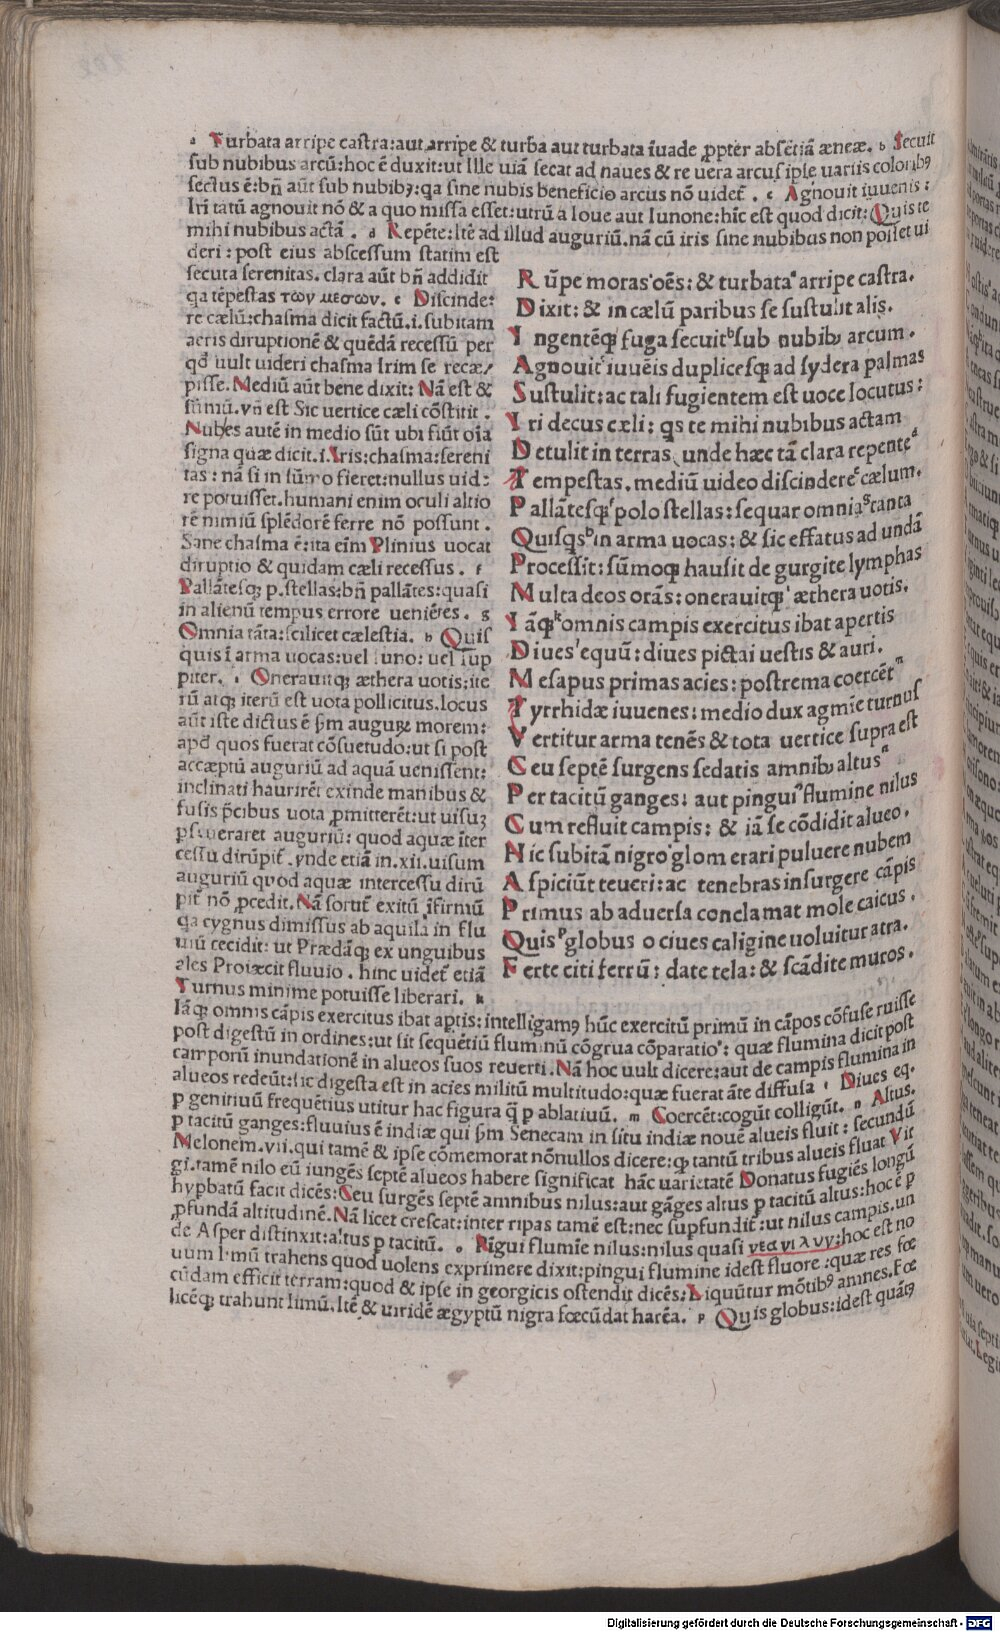 a Turbata arripe caſtra:aut arripe & turba aut turbata īuade ꝓpter abſētiā æneæ. b Secuit
ſub nubibus arcū:hoc ē duxit:ut Ille uiā ſecat ad naues & re uera arcuſ ipſe uariis coloribꝰ
ſectus ē:bn̄ aūt ſub nubibꝫ:qa ſine nubis beneficio arcus nō uidet̄. c Agnouit iuuenis:
Irī tatū agnouit nō & a quo miſſa eſſet:utrū a Ioue aut Iunone:hīc eſt quod dicit:Quis te
mihi nubibus actā. d Repēte:Itē ad illud auguriū.nā cū iris ſine nubibus non poſſet ui
deri: poſt eius abſceſſum ſtatim eſt
ſecuta ſerenitas. clara aūt bn̄ addidit
qa tēpeſtas των μεσων. e Diſcinde:
re cælū:chaſma dicit factū.i.ſubitam
aeris diruptionē & quēdā receſſū per
qd̄ uult uideri chaſma Irim ſe recæ/
piſſe. Mediū aūt bene dixit: Nā eſt &
ſūmū.vn̄ eſt Sic uertice cæli cōſtitit.
Nubes autē in medio ſūt ubi fiūt oīa
ſigna quæ dicit.i.Iris:chaſma:ſereni
tas: nā ſi in ſūmo fieret:nullus uid:
re potuiſſet.humani enim oculi altio
rē nimiū ſplēdorē ferre nō poſſunt.
Sane chaſma ē:ita eīm Plinius uocat
diruptio & quidam cæli receſſus. f
Pallāteſqꝫ p.ſtellas:bn̄ pallātes:quaſi
in alienū tempus errore ueniētes. g
Omnia tāta:ſcilicet cæleſtia. h Quiſ
quis ī arma uocas:uel Iuno: uel Iup
piter. i Onerauitqꝫ æthera uotis:ite
rū atqꝫ iterū eſt uota pollicitus.locus
aūt iſte dictus ē ſm̄ augurꝝ morem:
apd̄ quos fuerat cōſuetudo:ut ſi poſt
accæptū auguriū ad aquā ueniſſent:
inclinati haurirēt exinde manibus &
fuſis p̄cibus uota ꝓmitterēt:ut uiſuꝫ
pſeueraret auguriū: quod aquæ īter
ceſſu dirūpit̄.ynde etiā in.xii.uiſum
auguriū quod aquæ interceſſu dirū
pit̄ nō ꝓcedit.Nā ſorut̄ exitū īfirmū
qa cygnus dimiſſus ab aquila in flu
uiū cecidit: ut Prædāqꝫ ex unguibus
ales Proiæcit fluuio. hinc uidet̄ etiā
Turnus minime potuiſſe liberari. k
R ūpe moras oēs: & turbataᵃ arripe caſtra.
D ixit: & in cælū paribus ſe ſuſtulit alis.
I ngentēqꝫ fuga ſecuitᵇ ſub nubibꝫ arcum.
A gnouitᶜ iuuēis dupliceſqꝫ ad ſydera palmas
S uſtulit:ac tali fugientem eſt uoce locutus:
I ri decus cæli: qs te mihi nubibus actam
D etulit in terras, unde hæc tā clara repenteᵈ
T empeſtas. mediū uideo diſcindereᵉ cælum.
P allāteſqꝫᶠ polo ſtellas:ſequar omniaᵍ tanta
Q uiſqsʰ in arma uocas: & ſic effatus ad undā
P roceſſit: ſūmoqꝫ hauſit de gurgite lymphas
M ulta deos orās: onerauitqꝫⁱ æthera uotis.
I āqꝫᵏ omnis campis exercitus ibat apertis
D iuesˡ equū: diues pictai ueſtis & auri.
M eſapus primas acies: poſtrema coercētᵐ
T yrrhidæ iuuenes: medio dux agmīe turnuſ
V ertitur arma tenēs & tota uertice ſupra eſt
C eu ſeptē ſurgens ſedatis amnibꝫ altusⁿ
P er tacitū ganges: aut pinguiᵒ flumine nilus
C um refluit campis: & iā ſe cōdidit alueo.
H ic ſubitā nigro glomerari puluere nubem
A ſpiciūt teucri: ac tenebras inſurgere cāpis
P rimus ab aduerſa conclamat mole caicus.
Q uisᵖ globus o ciues caligine uoluitur atra.
F erte citi ferrū: date tela: & ſcādite muros.
Iāqꝫ omnis cāpis exercitus ibat aptis: intelligamꝰ hūc exercitū primū in cāpos cōfuſe ruiſſe
poſt digeſtū in ordines:ut ſit ſequētiū fluminū cōgrua cōparatio: quæ flumina dicit poſt
camporū inundationē in alueos ſuos reuerti.Nā hoc uult dicere:aut de campis flumina in
alueos redeūt:ſic digeſta eſt in acies militū multitudo:quæ fuerat āte diffuſa l Diues eq.
p genitiuū frequētius utitur hac figura q̄ p ablatiuū. m Coercēt:cogūt colligūt. n Altus.
p tacitū ganges:fluuius ē indiæ qui ſm̄ Senecam in ſitu indiæ nouē alueis fluit: ſecundū
Melonem.vii.qui tamē & ipſe cōmemorat nōnullos dicere:qꝫ tantū tribus alueis fluat Vir
gi.tamē nilo eū iungēs ſeptē alueos habere ſignificat hāc uarietatē Donatus fugiēs longū
hypbatū facit dicēs:Ceu ſurgēs ſeptē amnibus nilus:aut gāges altus p tacitū altus:hoc ē p
ꝓfundā altitudinē.Nā licet creſcat:inter ripas tamē eſt:nec ſupfundit̄:ut nilus campis.un
de Aſper diſtinxit:altus p tacitū. o Pīgui flumīe nilus:nilus quaſi νεα γι λυν:hoc eſt no
uum limū trahens quod uolens exprimere dixit:pingui flumine ideſt fluore:quæ res fœ
cūdam efficit terram:quod & ipſe in georgicis oſtendit dicēs:Liquūtur mōtibꝰ amnes.Fœ
licēqꝫ trahunt limū.Itē & uiridē ægyptū nigra fœcūdat harēa. p Quis globus:ideſt quātꝰ
Digitalisierung gefördert durch die Deutsche Forschungsgemeinschaft - DFG